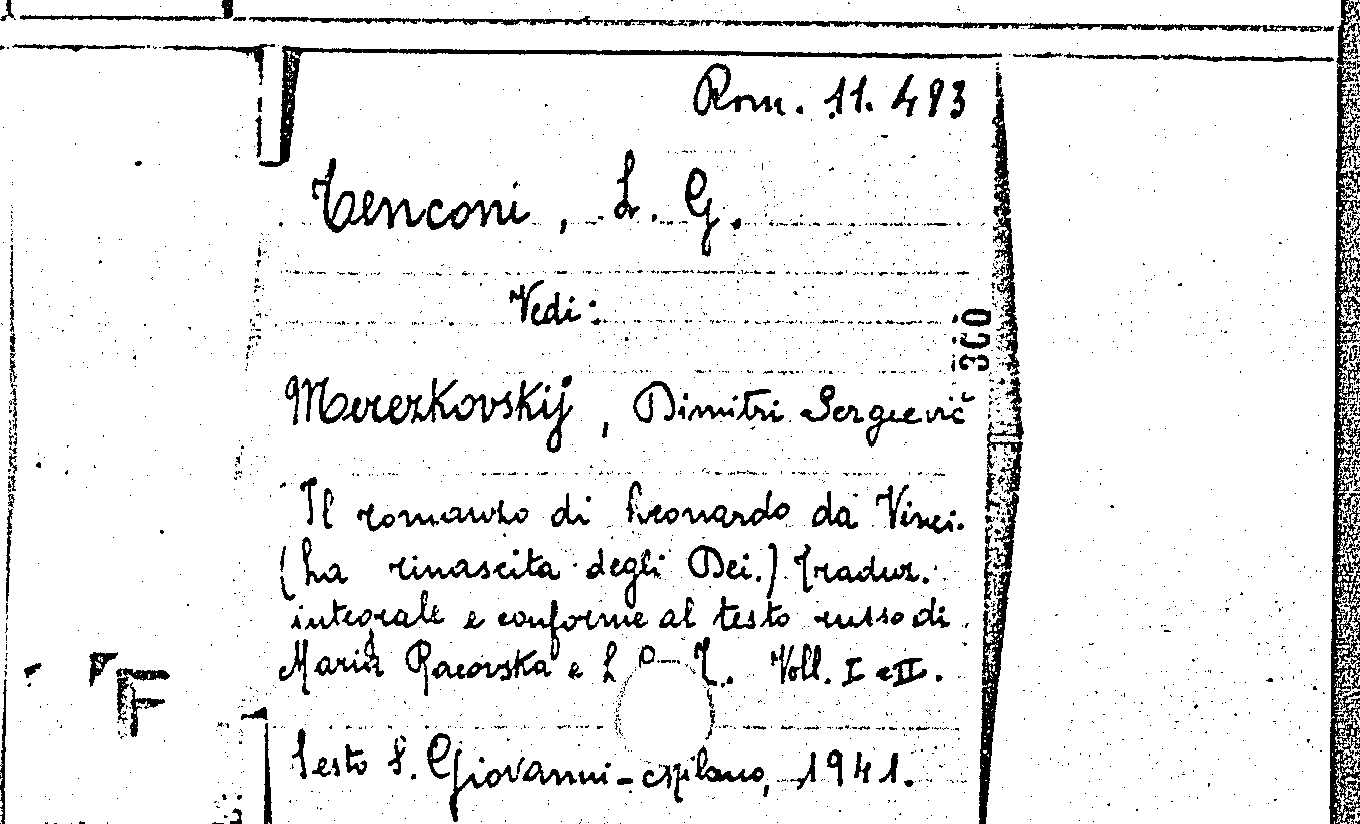 Rom. 11. 493
Tenconi, L. G.
Vedi:
300
Merezkovskij, Dimitri Sergeevič
Il romanzo di Leonardo da Vinci.
(La rinascita degli Dei.) Traduz.
integrale e conforme al testo russo di
Maria Racovska e L. G. T. Voll. I e II.
Sesto S. Giovanni-Milano, 1941.
F